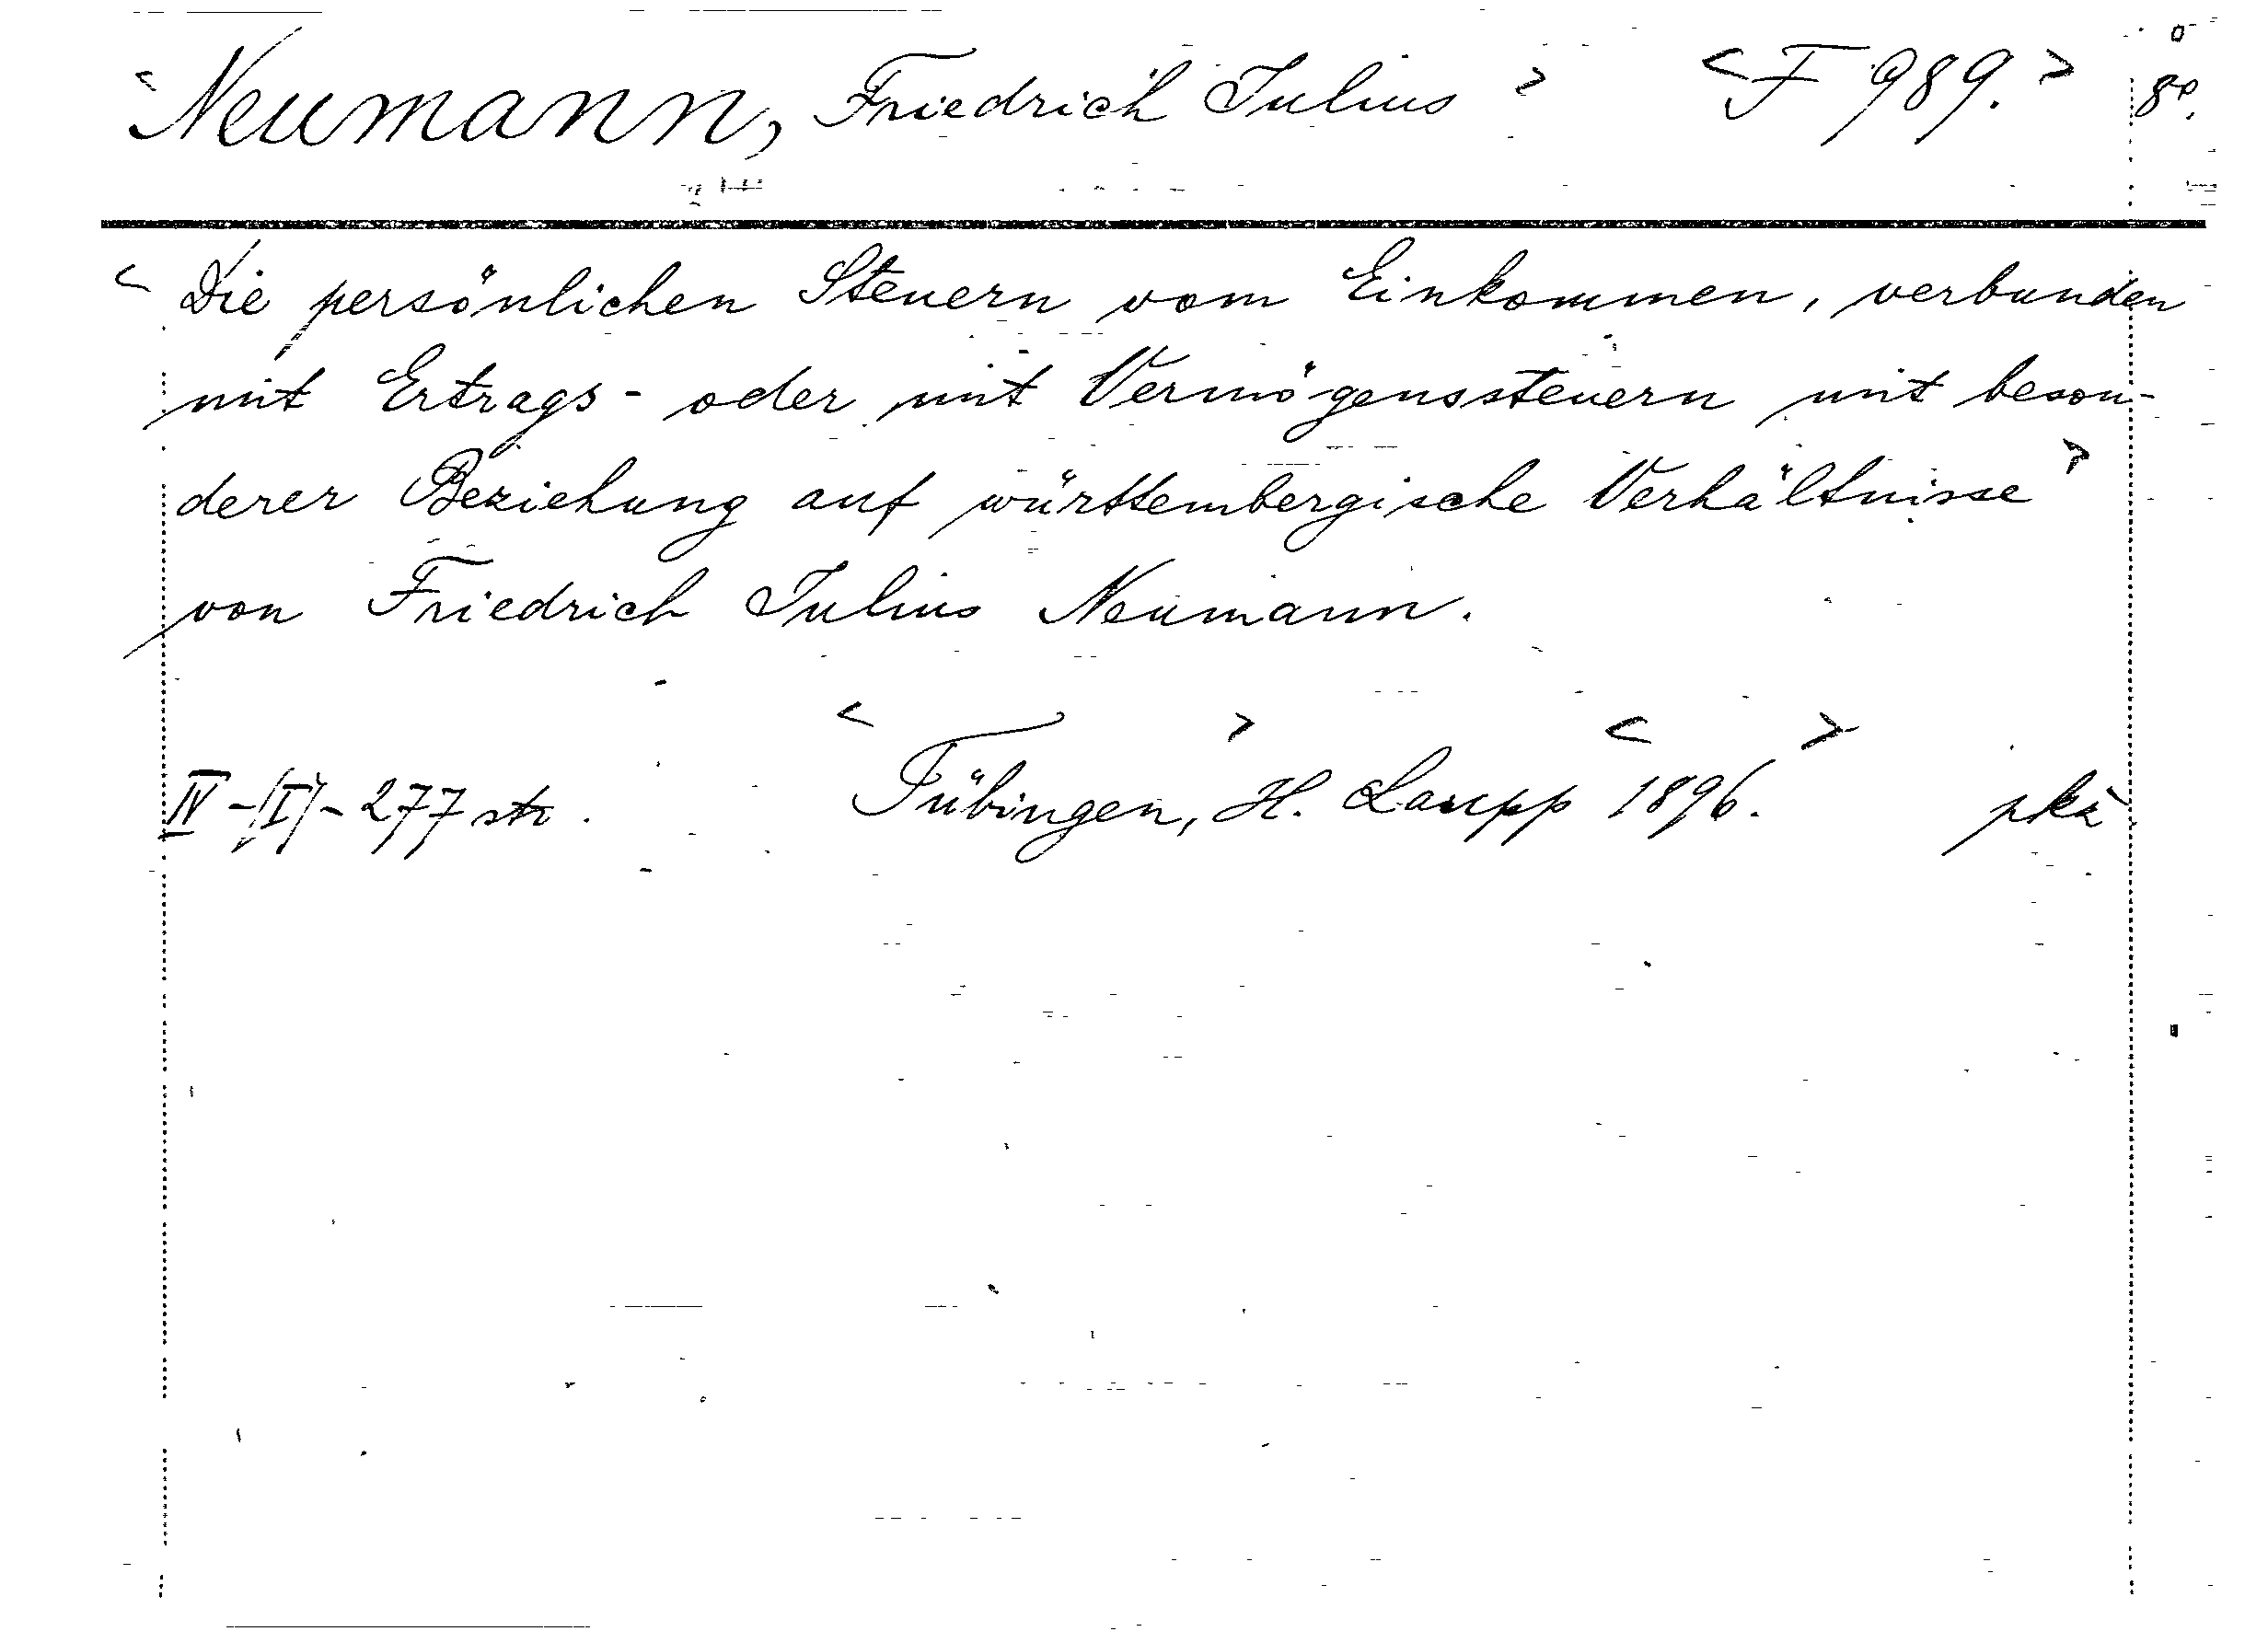 <Neumann, Friedrich Julius> <F 989.> 8°.
<Die persönlichen Steuern vom Einkommen, verbunden
mit Ertrags- oder mit Vermögenssteuern mit beson-
derer Beziehung auf württembergische Verhältnisse>
von Friedrich Julius Neumann.
IV-(I)-277 str. <Tübingen,> H. Laupp <1896.> pkà